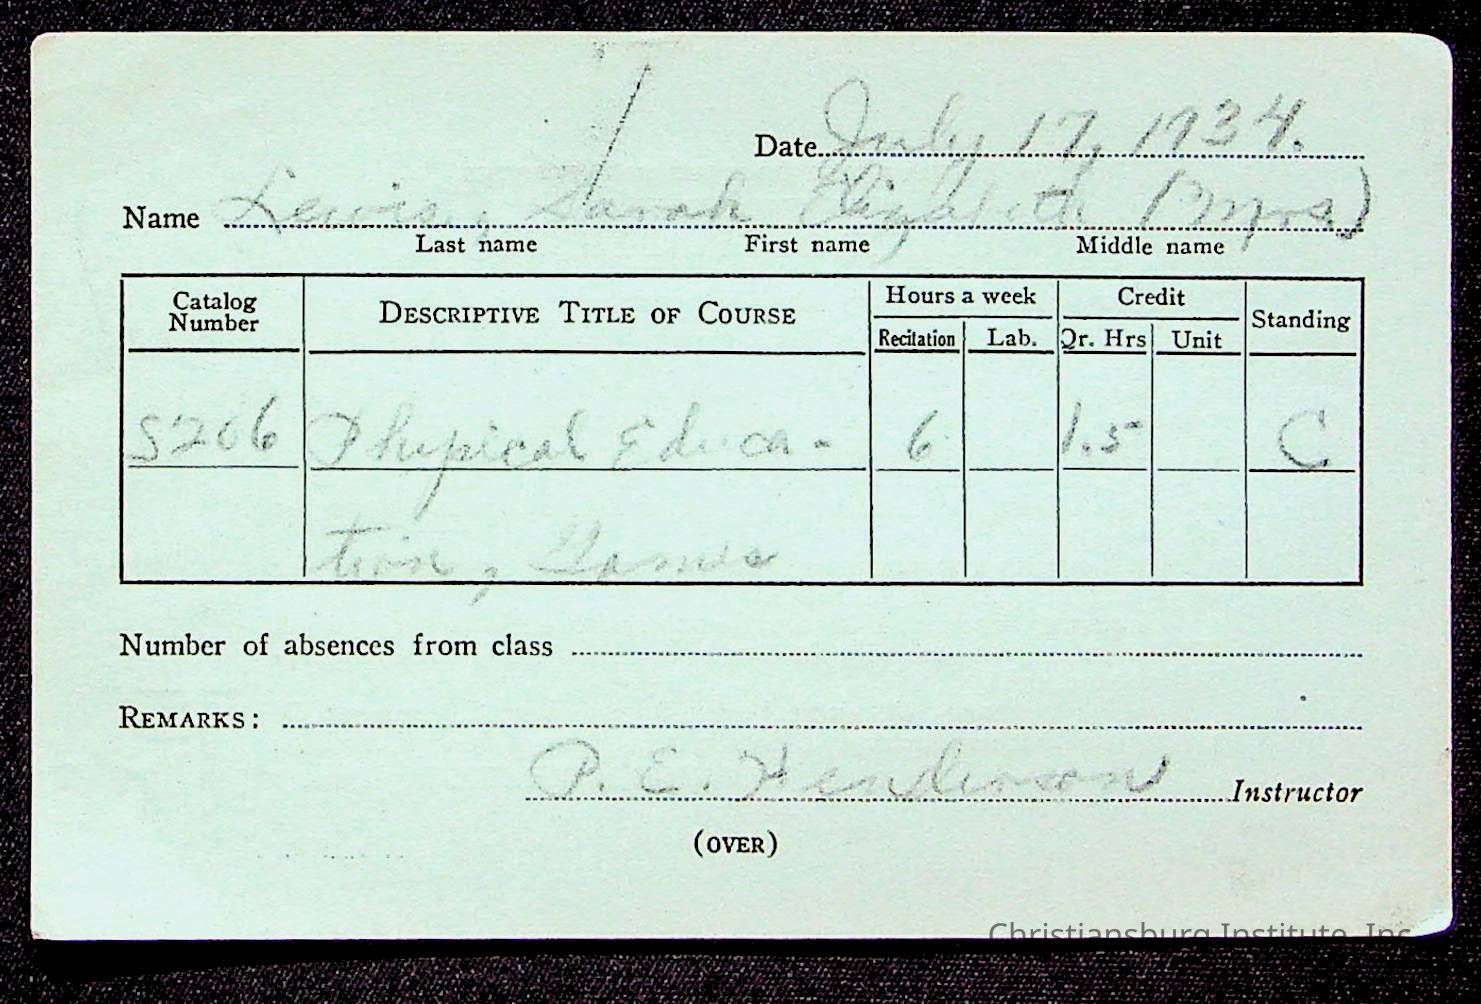 Date July 17, 1934.
Name Lewis, Sarah Elizabeth (Mrs)
Last name First name Middle name
Catalog Number DESCRIPTIVE TITLE OF COURSE Hours a week Credit Standing
Recitation Lab. Qr. Hrs Unit
S206 Physical Educa- 6 1.5 C
tion, Games
Number of absences from class
REMARKS:
P. E. Henderson Instructor
(OVER)
Christiansburg Institute, Inc.